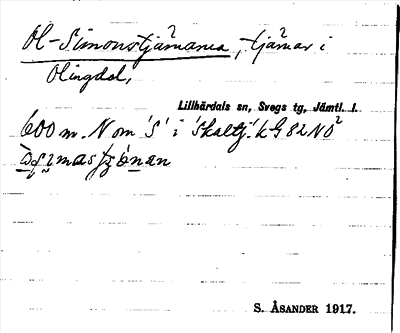 Ol-Simonstjärnarna, tjärnar i
Olingdal,
Lillhärdals sn, Svegs tg, Jämtl. l.
600 m. N om 'S' i 'Skaltj.' k G 82 NO²
S. ÅSANDER 1917.